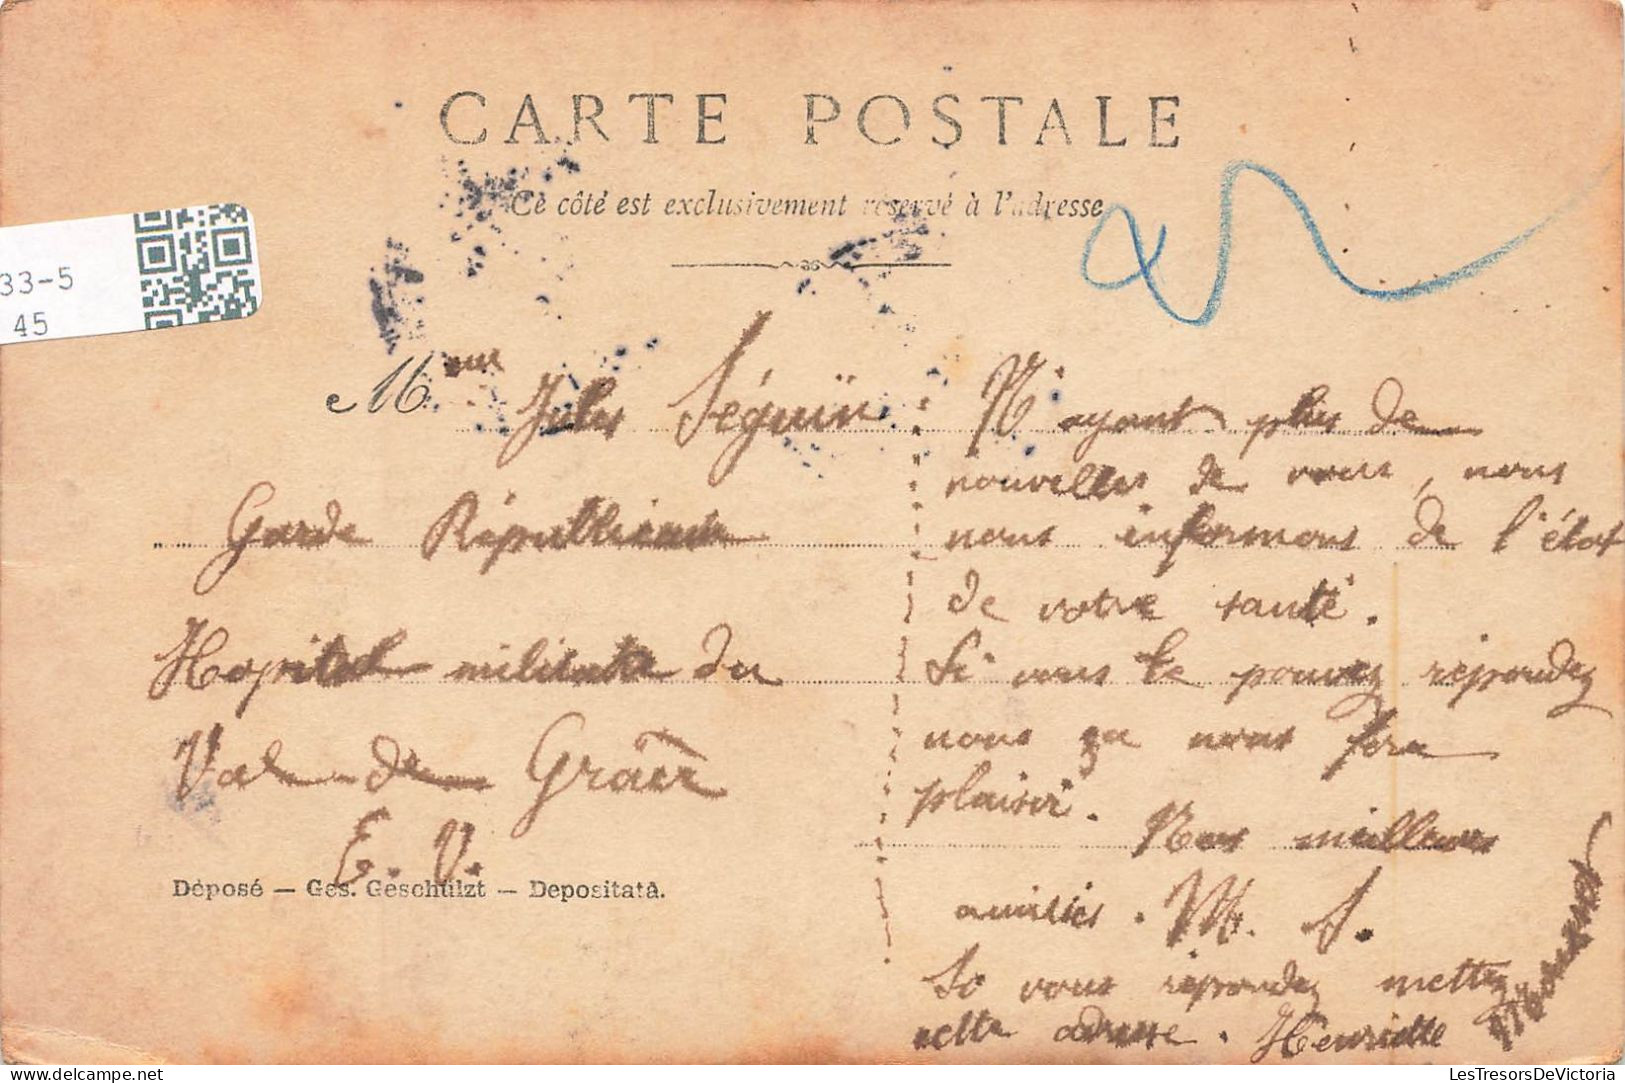 CARTE POSTALE
Ce côté est exclusivement réservé à l'adresse
33-5
45
M
Jules Séguin
Garde Républicaine
Hopital militaire du
Val de Grâce
E. V.
Déposé — Ges. Geschülzt — Depositatà.
N'ayant plus de
nouvelles de vous, nous
nous informons de l'état
de votre santé.
Si vous le pouvez répondez
nous ça nous fera
plaisir. Nos meilleures
amitiés. M. S.
Si vous répondez mettez
cette adresse. Henriette
LesTresorsDeVictoria